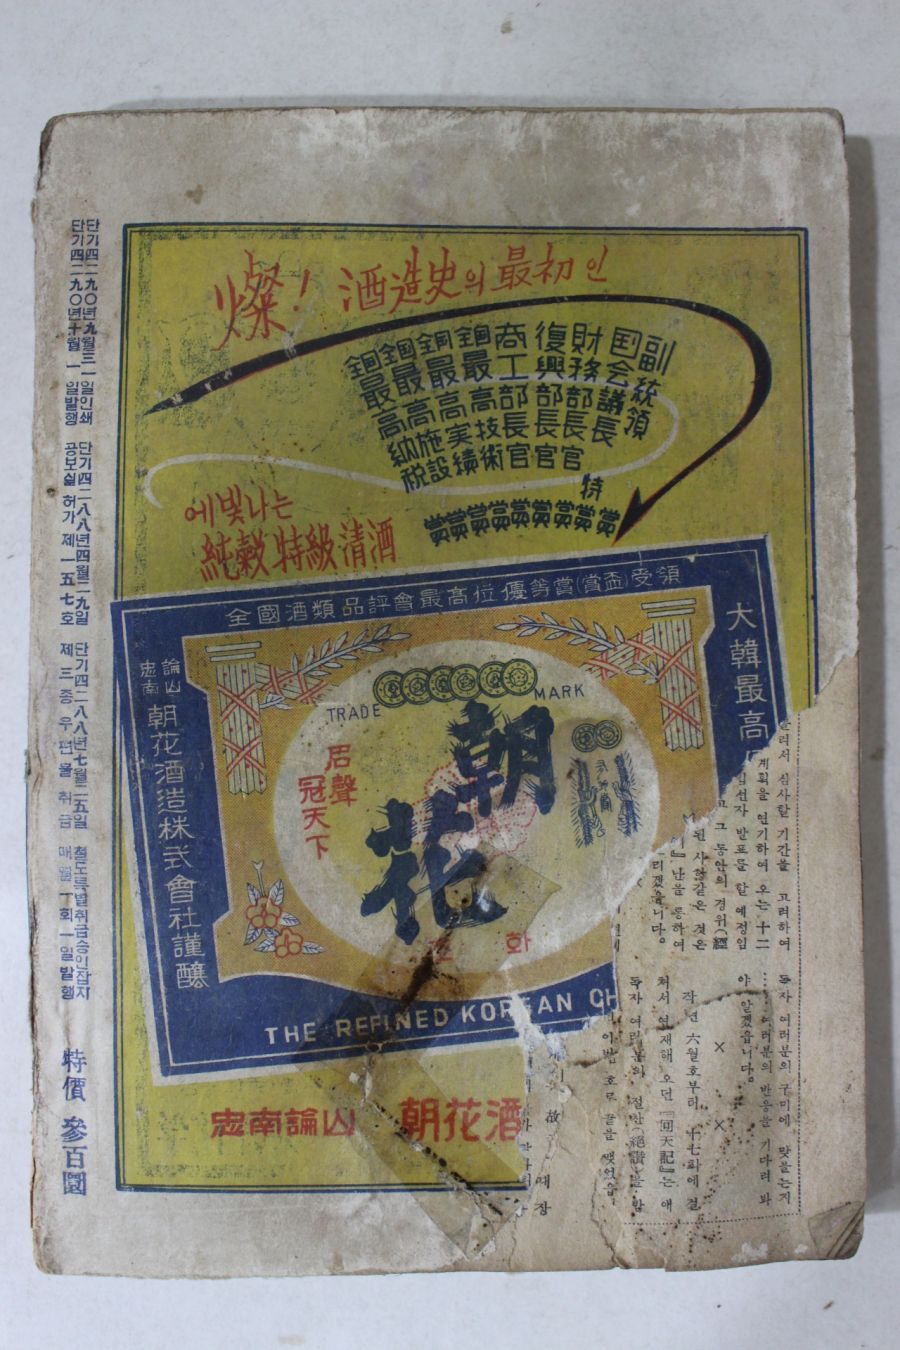 단기四二九〇년九월三一일인쇄
단기四二九〇년十월一일발행
단기四二八八년四월二九일
공보실허가제一五七호
단기四二八八년七월二五일
제三종우편물취급
철도특별취급승인잡지
매월一회一일발행
特價 參百圜
燦! 酒造史의 最初인
副統領賞
国会議長賞
財務部長官特賞
復興部長官賞
商工部長官賞
銅最高技術賞
銅最高実績賞
銅最高施設賞
銅最高納税賞
에빛나는
純穀特級清酒
全國酒類品評會最高位優等賞(賞盃)受領
大韓最高
論山
忠南
朝花酒造株式會社謹釀
TRADE MARK
朝花
居聲
冠天下
조화
THE REFINED KOREAN CH
忠南論山 朝花酒
심사할 기간을 고려하여
계획을 연기하여 오는 十二
선자 발표를 할 예정입
그 동안의 경위(經
된 사항같은 것은
난을 통하여
리겠습니다。
독자 여러분의 구미에 맞을는지
여러분의 반응을 기다려 봐
야 알겠읍니다。
× ×
작년 六월호부터 十七화에 걸
쳐서 연재해 오던 『回天記』는 애
독자 여러분의 절찬(絶讚)을 받
이번 호로 끝을 맺었습